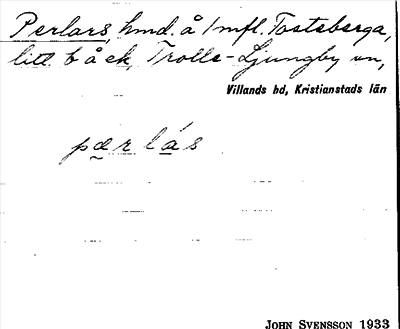 Perlars, hmd. å 1 mfl. Tosteberga,
litt. b å ek, Trolle-Ljungby sn,
Villands hd, Kristianstads län
pærlás
JOHN SVENSSON 1933